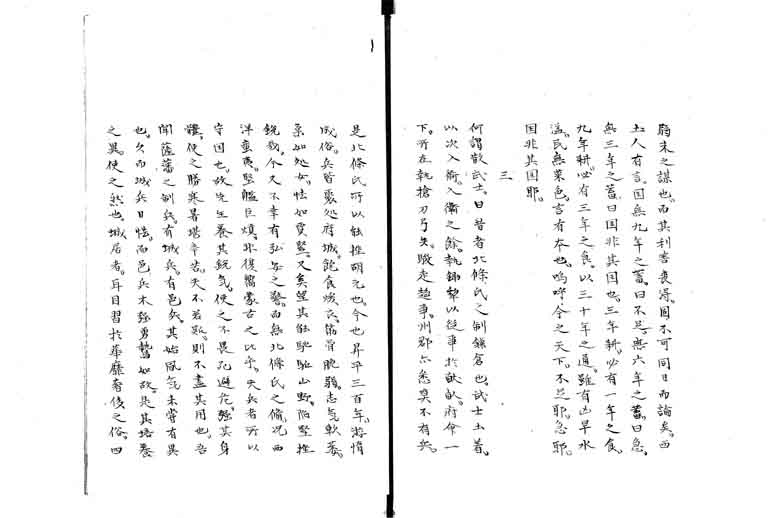 爲末之謀也。而其利害喪得。固不可同日而論矣。西
土人有言。国無九年之蓄。曰不足。無六年之蓄。曰急。
無三年之蓄。曰国非其国也。三年耕。必有一年之食。
九年耕。必有三年之食。以三十年之通。雖有凶旱水
溢。民無菜色。言有本也。嗚呼。今之天下。不足耶。急耶。
国非其国耶。
三
何謂散武士。曰昔者北條氏之制鎌倉也。武士土着。
以次入衛。入衛之餘。執鋤犂以従事於畎畝。府命一
下。所在執槍刀弓矢。蹶走趨事。州郡亦悉莫不有兵。
是北條氏所以能挫胡元也。今也昇平三百年。游惰
成俗。兵皆聚処府城。飽食煖衣。筋骨脆弱。志気軟萎。
柔如処女。怯如賈豎。又奚望其能馳駆山野。陷堅挫
鋭哉。今又不幸有弘安之警。而無北條氏之備。况西
洋蛮夷。堅艦巨熕。非復嚮蒙古之比乎。夫兵者所以
守国也。故先王養其鋭気。使之不畏死避危。強其身
體。使之勝寒暑堪辛苦。夫不若欺。則不盡其用也。吾
聞薩藩之制兵。有城兵。有邑兵。其始風気未嘗有異
也。久而城兵日怯。而邑兵木強勇鷙如故。是其培養
之異。使之然也。城居者。耳目習於華靡奢侈之俗。四